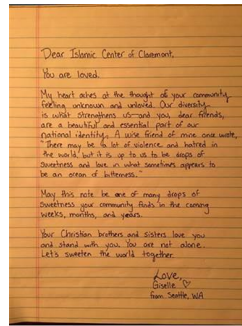 Dear Islamic Center of Claremont,
You are loved.
My heart aches at the thought of your community
feeling unknown and unloved. Our diversity
is what strengthens us—and you, dear friends,
are a beautiful and essential part of our
national identity. A wise friend of mine once wrote,
"There may be a lot of violence and hatred in
the world, but it is up to us to be drops of
sweetness and love in what sometimes appears to
be an ocean of bitterness."
May this note be one of many drops of
sweetness your community finds in the coming
weeks, months, and years.
Your Christian brothers and sisters love you
and stand with you. You are not alone.
Let's sweeten the world together.
Love,
Giselle ♡
from Seattle, WA